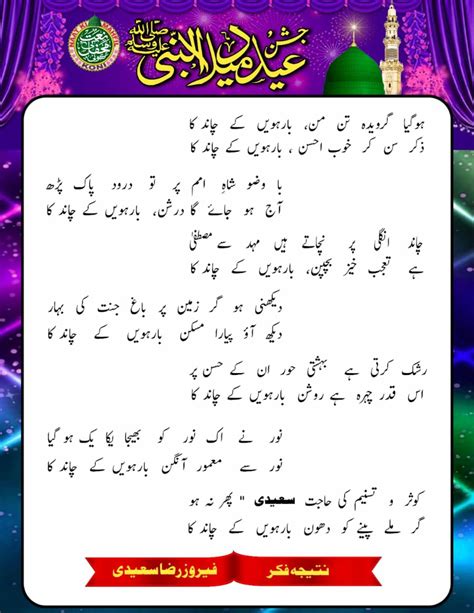 جشن
عید میلاد النبی
صلی اللہ علیہ وسلم
ہوگیا گرویدہ تن من، بارہویں کے چاند کا
ذکر سن کر خوب احسن ، بارہویں کے چاند کا
با وضو شاہِ امم پر تو درود پاک پڑھ
آج ہو جائے گا درشن، بارہویں کے چاند کا
چاند انگلی پر نچاتے ہیں مہد سے مصطفیٰ
ہے تعجب خیز بچپن، بارہویں کے چاند کا
دیکھنی ہو گر زمین پر باغ جنت کی بہار
دیکھ آؤ پیارا مسکن بارہویں کے چاند کا
رشک کرتی ہے بہشتی حور ان کے حسن پر
اس قدر چہرہ ہے روشن بارہویں کے چاند کا
نور نے اک نور کو بھیجا یکا یک ہو گیا
نور سے معمور آنگن بارہویں کے چاند کا
کوثر و تسنیم کی حاجت سعیدی " پھر نہ ہو
گر ملے پینے کو دھون بارہویں کے چاند کا
نتیجہ فکر فیروز رضا سعیدی